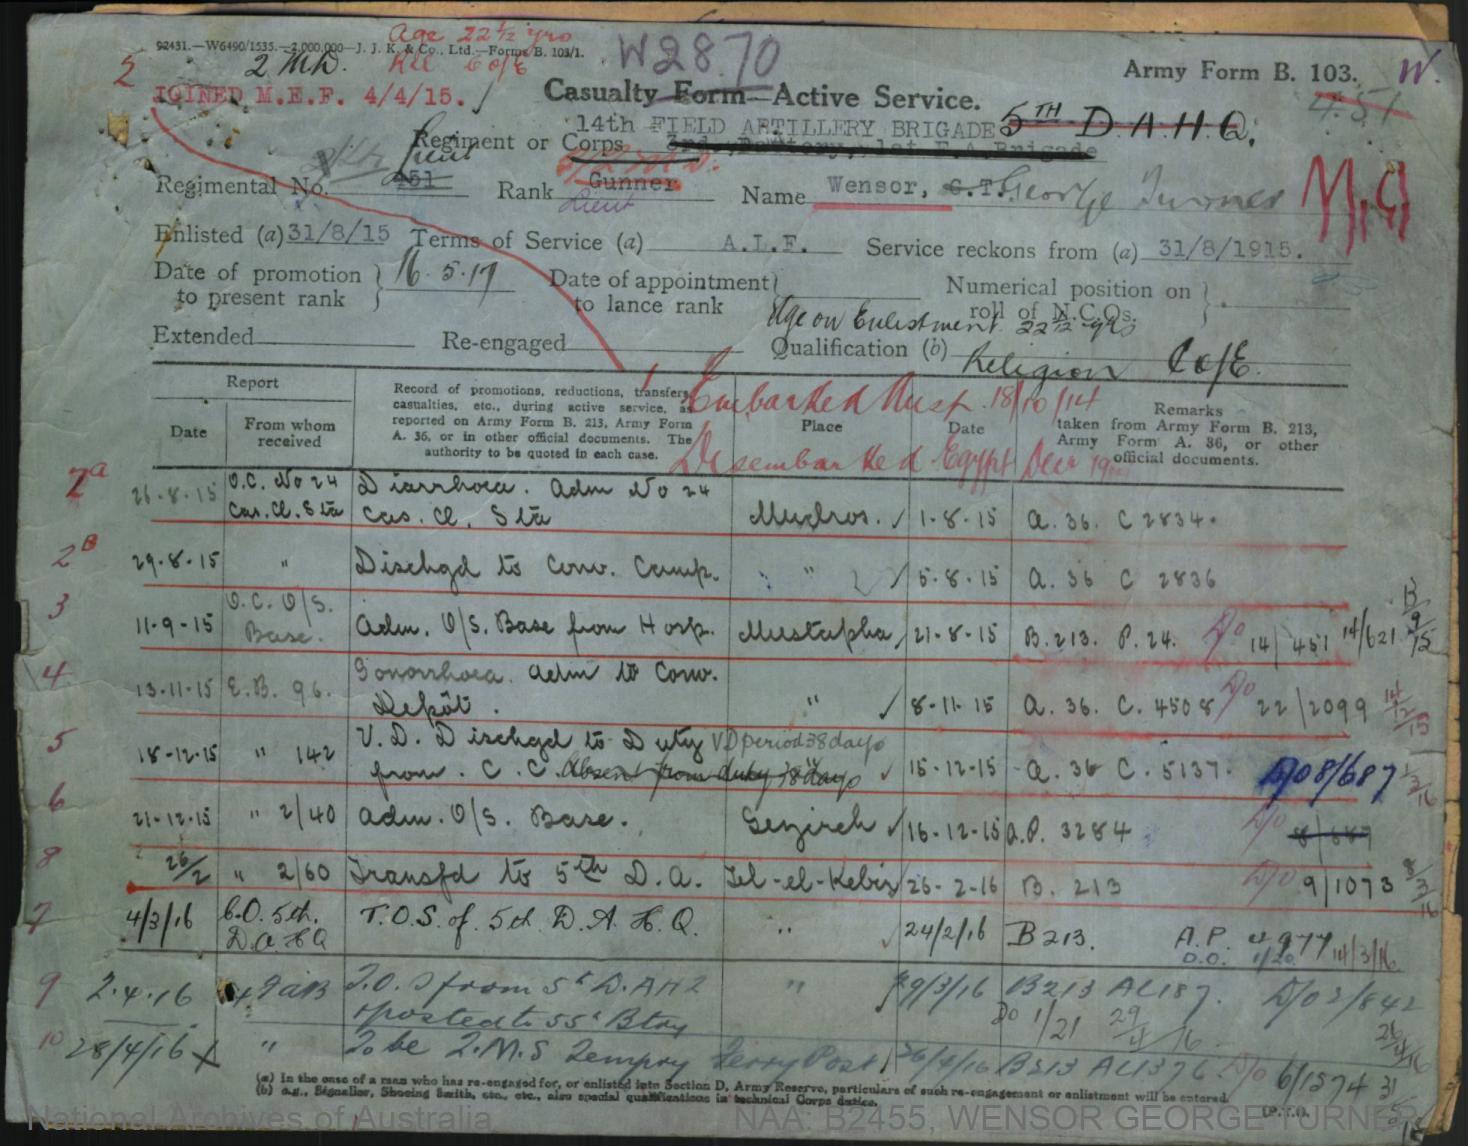 92431.—W6490/1535.—2,000,000—J. J. K. & Co., Ltd.—Forms B. 103/1.
Age 22½ yrs
2 MD. Rel C of E
W2870
Army Form B. 103. W.
451
JOINED M.E.F. 4/4/15.
Casualty Form—Active Service.
14th FIELD ARTILLERY BRIGADE 5TH D.A.H.Q.
Regiment or Corps 3rd Battery, 1st F.A. Brigade
Lieut
Regimental No. 451 Rank Gunner Name Wensor, G.T. George Turner
Lieut
Enlisted (a) 31/8/15 Terms of Service (a) A.I.F. Service reckons from (a) 31/8/1915.
Date of promotion to present rank } 16.5.17 Date of appointment to lance rank } Numerical position on roll of N.C.Os. }
Age on Enlistment 22 6/12 yrs
Extended Re-engaged Qualification (b)
Religion C of E.
Embarked Aust. 18/10/14
Disembarked Egypt Decr
Report
Date
From whom received
Record of promotions, reductions, transfers, casualties, etc., during active service, as reported on Army Form B. 213, Army Form A. 36, or in other official documents. The authority to be quoted in each case.
Place
Date
Remarks
taken from Army Form B. 213, Army Form A. 36, or other official documents.
2a 26-8-15 O.C. No 24 Cas. Cl. Sta Diarrhoea. Adm No 24 Cas. Cl. Sta Mudros. 1-8-15 A. 36. C 2834.
2B 29-8-15 " Dischgd to Conv. Camp. " 5-8-15 A. 36 C 2836
3 11-9-15 O.C. O/S. Base. Adm. O/S. Base from Hosp. Mustapha 21-8-15 B. 213. P. 24. D/o 14/451 14/621 13/9/15
4 13-11-15 E.B. 96. Gonorrhoea. Adm to Conv. Depôt. " 8-11-15 A. 36. C. 4508 D/o 22/2099 14/12/15
5 18-12-15 " 142 V.D. Dischgd to Duty VD period 38 days from. C. C. Absent from duty 38 days 15-12-15 A. 36 C. 5137. D/o 8/687
6 21-12-15 " 2/40 Adm. O/S. Base. Gezireh 16-12-15 A.P. 3284 D/o 8/687
8 26/2 " 2/60 Transfd to 5th D.A. Tel-el-Kebir 26-2-16 B. 213 D/o 9/1073 8/3/16
7 4/3/16 C.O. 5th. D.A.H.Q T.O.S. of. 5th D.A.H.Q. " 24/2/16 B213. A.P. 977 D.O. 1/20 14/3/16
9 2.4.16 14 FAB T.O.S from 5th D.AHQ & posted to 55th Btry " 9/3/16 B213 AC187. D/o 2/842
Do 1/21 29/4/16
10 28/4/16 " To be 2.M.S Tempry Ferry Post 26/4/16 B213 AC1376 D/o 6/1574
(a) In the case of a man who has re-engaged for, or enlisted into Section D, Army Reserve, particulars of such re-engagement or enlistment will be entered.
(b) e.g., Signaller, Shoeing Smith, etc., etc., also special qualifications in technical Corps duties.
[P.T.O.
National Archives of Australia
NAA: B2455, WENSOR GEORGE TURNER